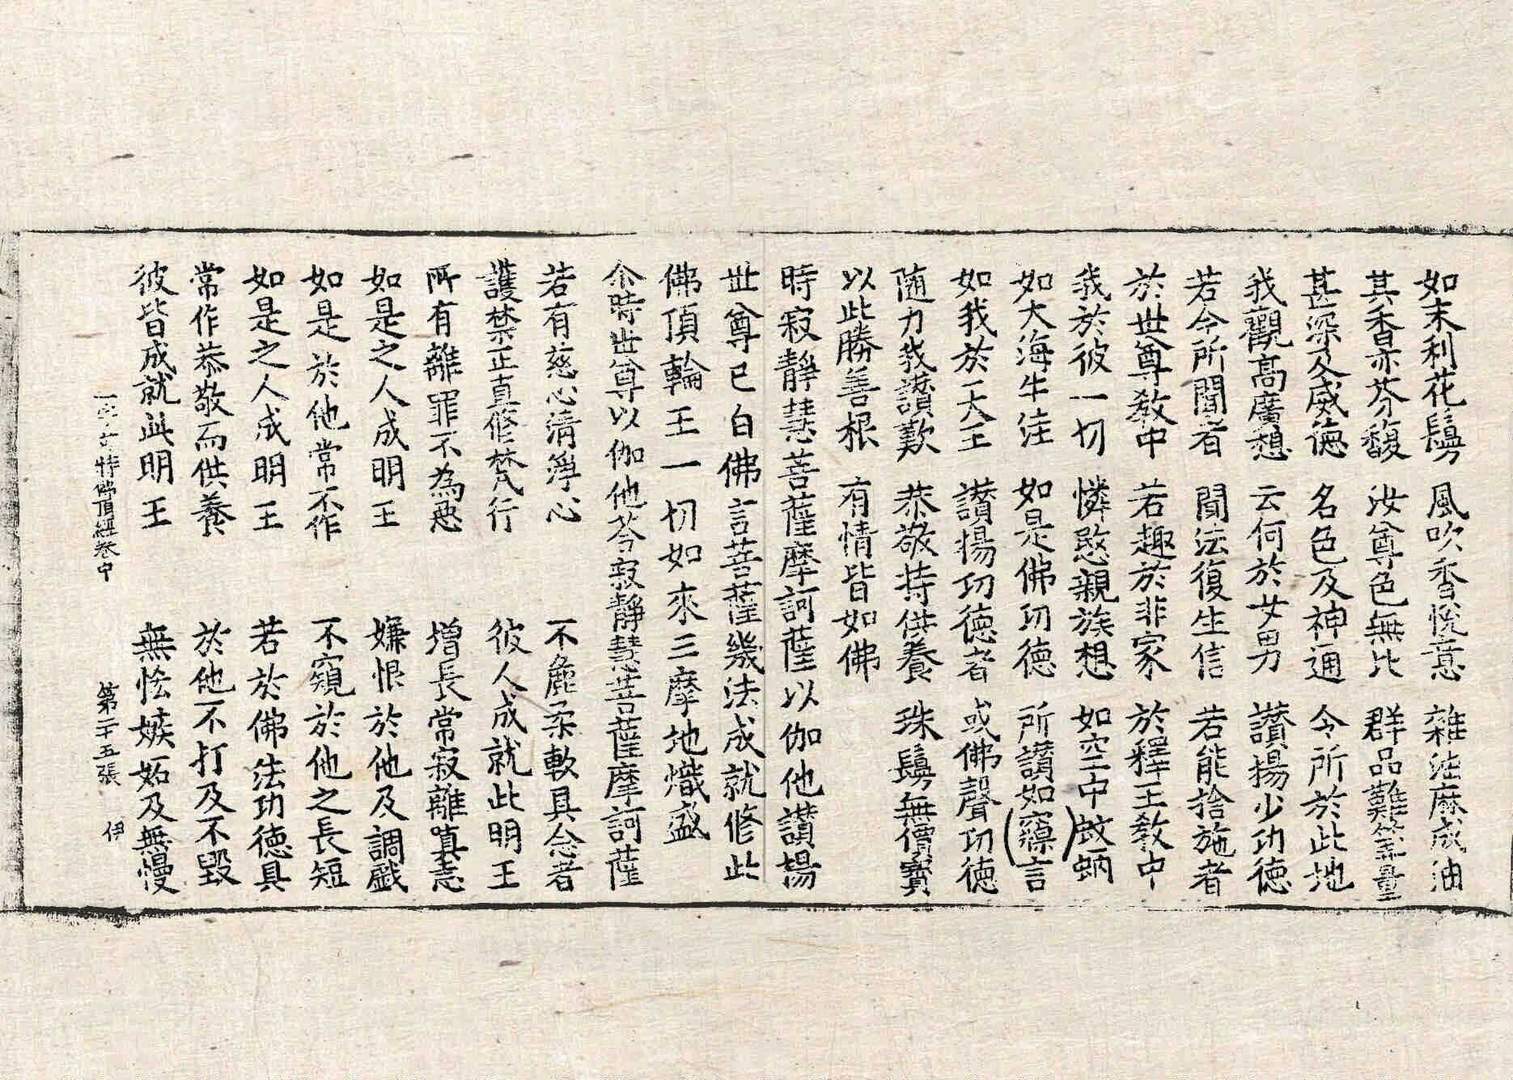 如末利花鬘　風吹香悅意　雜油麻成油
其香亦芬馥　汝尊色無比　群品難筭量
甚深及威德　名色及神通　令所於此地
我觀高廣想　云何於女男　讃揚少功德
若令所聞者　聞法復生信　若能捨施者
於世尊教中　若趣於非家　於釋王教中
我於彼一切　憐愍親族想　如空中(蚊蚋
如大海牛迹　如是佛功德　所讃如(寱)言
如我於天王　讃揚功德者　或佛聲功德
随力我讃歎　恭敬持供養　珠鬘無價寳
以此勝善根　有情皆如佛
時寂靜慧菩薩摩訶薩以伽他讃揚
世尊已白佛言菩薩幾法成就修此
佛頂輪王一切如來三摩地熾盛
尒時世尊以伽他荅寂靜慧菩薩摩訶薩
若有慈心清淨心　不麁柔軟具念者
護禁正真修梵行　彼人成就此明王
所有離罪不為惡　增長常寂離嗔恚
如是之人成明王　嫌恨於他及調戲
如是於他常不作　不窺於他之長短
如是之人成明王　若於佛法功德具
常作恭敬而供養　於他不打及不毀
彼皆成就此明王　無恡嫉妬及無慢
一字奇特佛頂經卷中　第二十五張　伊